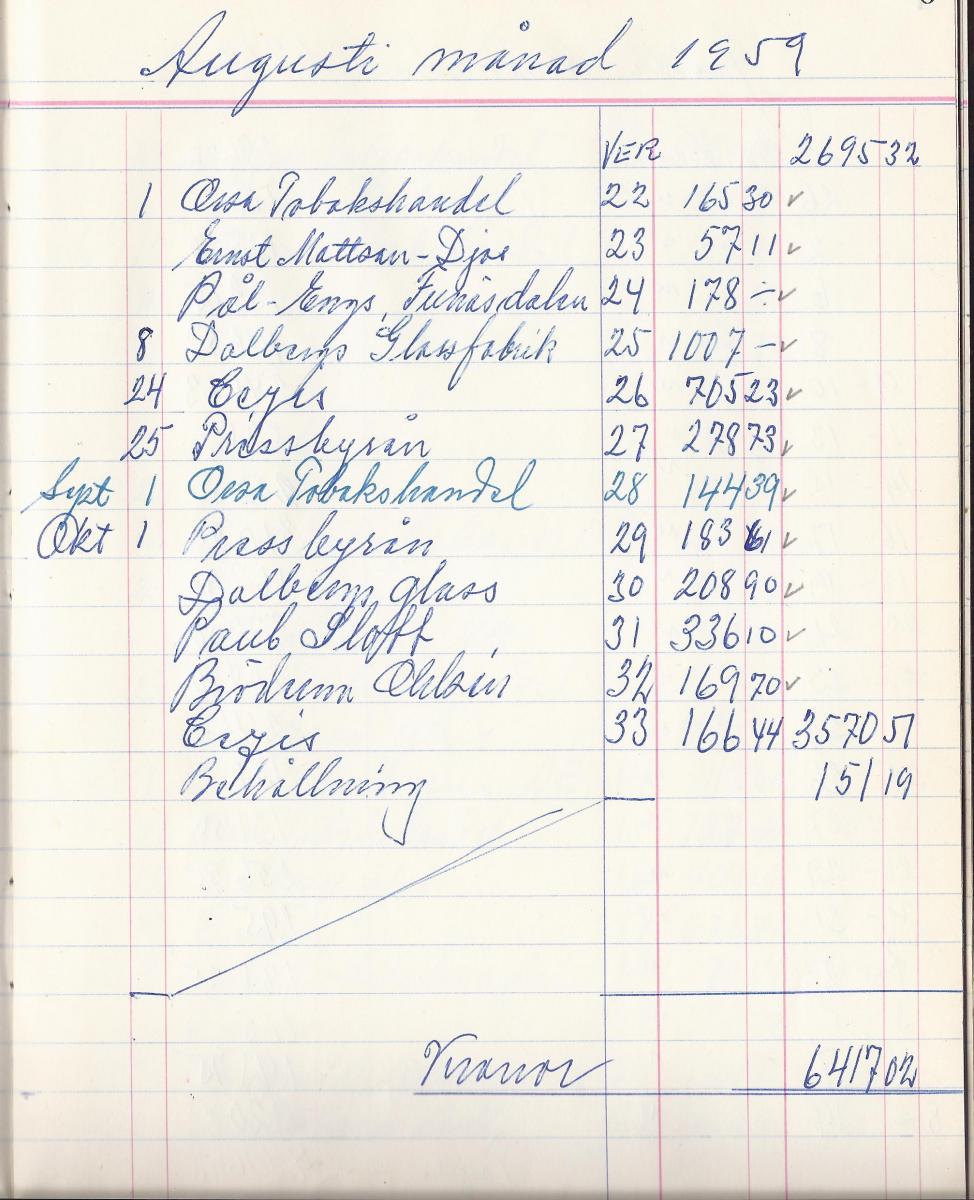 Augusti månad 1959
VER 2695 32
1 Orsa Tobakshandel 22 165 30 ✓
Ernst Mattsson-Djos 23 57 11 ✓
Pål-Engs, Funäsdalen 24 178 ÷ ✓
8 Dalbergs Glassfabrik 25 1007 — ✓
24 26 705 23 ✓
25 Pressbyrån 27 278 73 ✓
Sept 1 Orsa Tobakshandel 28 144 39 ✓
Okt 1 Pressbyrån 29 183 61 ✓
Dalbergs glass 30 208 90 ✓
31 336 10 ✓
Bröderna 32 169 70 ✓
33 166 44 3570 51
Behållning 151 19
Kronor 6417 02